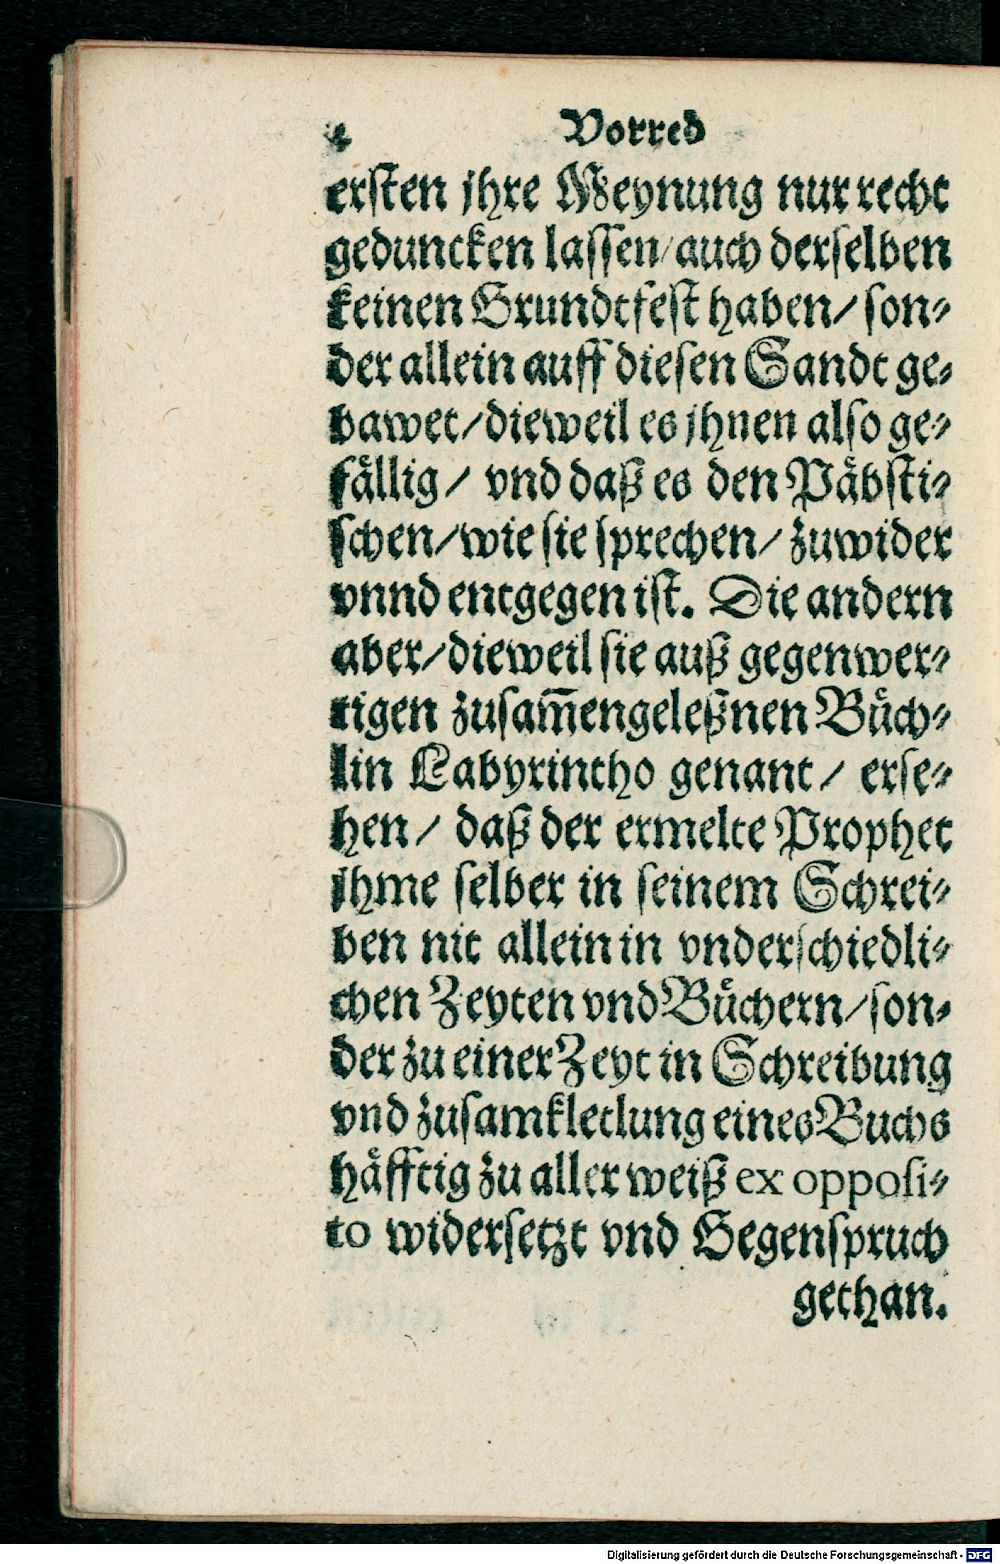 4 Vorred
ersten jhre Meynung nur recht
geduncken lassen/ auch derselben
keinen Grundtfest haben/ son⸗
der allein auff diesen Sandt ge⸗
bawet/ dieweil es jhnen also ge⸗
fällig/ vnd daß es den Päbsti⸗
schen/ wie sie sprechen/ zuwider
vnnd entgegen ist. Die andern
aber/ dieweil sie auß gegenwer⸗
tigen zusam̃engeleßnen Büch⸗
lin Labyrintho genant/ erse⸗
hen/ daß der ermelte Prophet
jhme selber in seinem Schrei⸗
ben nit allein in vnderschiedli⸗
chen Zeyten vnd Büchern/ son⸗
der zu einer Zeyt in Schreibung
vnd zusamkletlung eines Buchs
häfftig zu aller weiß ex opposi⸗
to widersetzt vnd Gegenspruch
gethan.
Digitalisierung gefördert durch die Deutsche Forschungsgemeinschaft - DFG